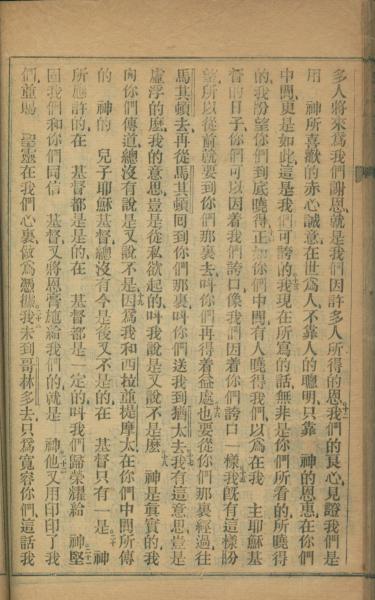 多人將來爲我們謝恩就是我們因許多人所得的恩十二我們的良心見證我們是
用 神所喜歡的赤心誠意在世爲人不靠人的聰明只靠 神的恩惠在你們
中間更是如此這是我們可誇的我現在所寫的話無非是你們所看的所曉得
的我盼望你們到底曉得正如你們中間有人曉得我們以爲在我 主耶穌基
督的日子你們可以因着我們誇口像我們因着你們誇口一樣我旣有這樣盼
望所以從前就要到你們那裏去呌你們再得着益處也要從你們那裏經過往
馬其頓去再從馬其頓回到你們那裏呌你們送我到猶太去我有這意思豈是
虛浮的麽我的意思豈是從私欲起的呌我說是又說不是麽 神是眞實的我
向你們傳道總沒有說是又說不是因爲我和西拉並提摩太在你們中間所傳
的 神的 兒子耶穌基督總沒有今是後又不是的在 基督只有一是 神
所應許的在 基督都是是的在 基督都是一定的呌我們歸榮耀給 神堅
固我們和你們同信 基督又將恩膏施給我們的就是 神他又用印印了我
們並賜 聖靈在我們心裏做爲憑據我未到哥林多去只爲寬容你們這話我